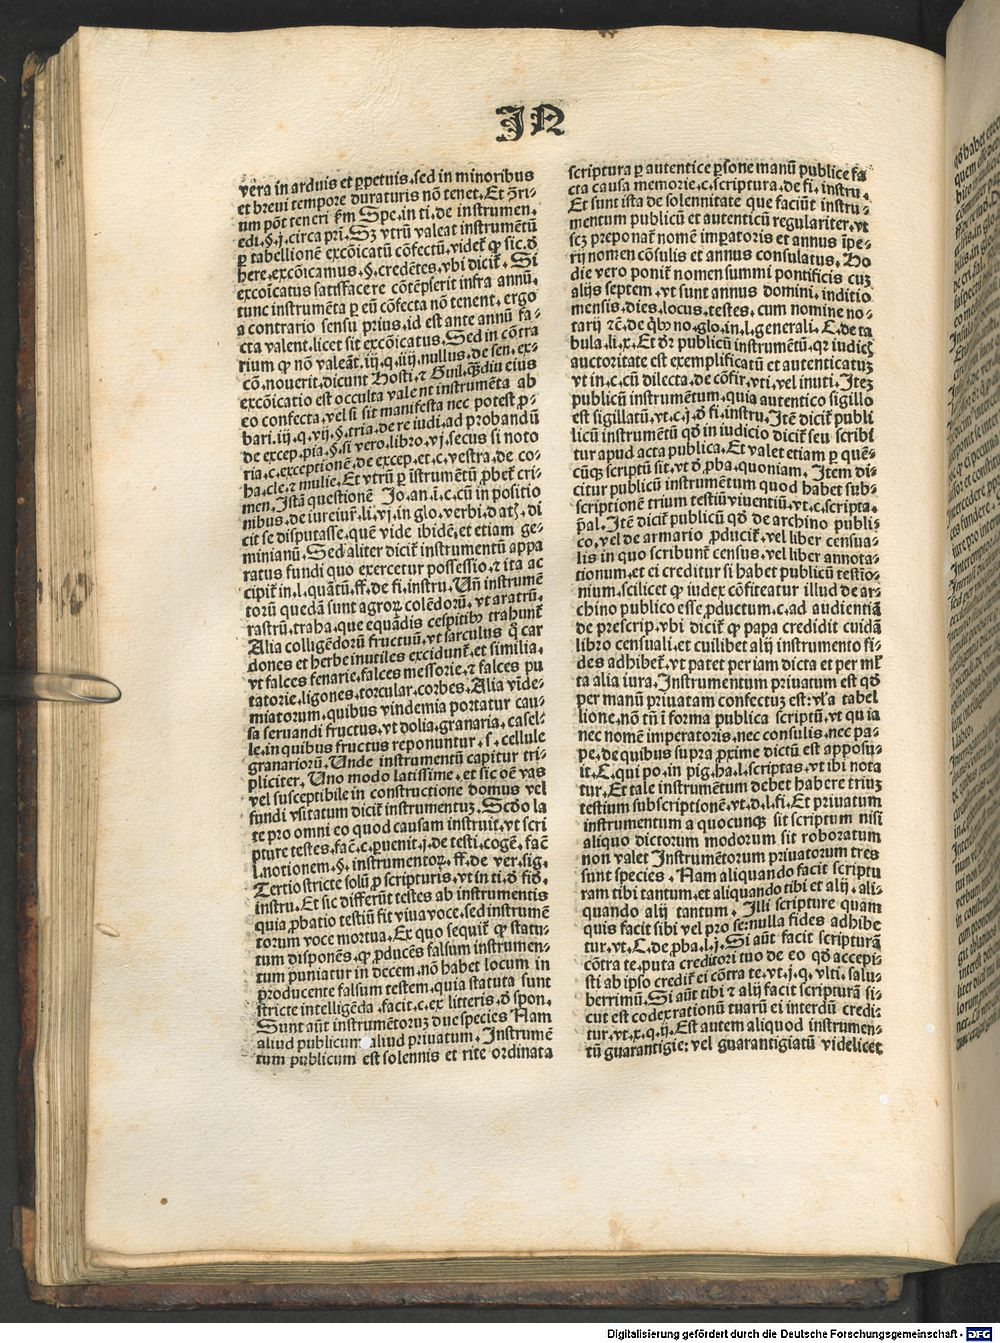 IN
vera in arduis et ꝑpetuis.sed in minoribus
et breui tempore duraturis nō tenet.Et
um pōt teneri ẜm Spe.in ti.de instrumen.
edi.§.j.circa pri.Sꝫ vtrū valeat instrumētū
ꝑ tabellionē excōicatū cōfectū.videt̄ ꝙ sic.ð
here.excōicamus.§.credētes.vbi dicit̄. Si
excoīcatus satisfacere cōtēpserit infra annū.
tunc instrumēta ꝑ eū cōfecta nō tenent. ergo
a contrario sensu prius.id est ante annū fa⸗
cta valent.licet sit excōicatus. Sed in cōtra
rium ꝙ nō valeāt.iij.q.iiij.nullus.de sen.ex⸗
cō.nouerit.dicunt Hosti.⁊ Guil.qꝫdiu eius
excōicatio est occulta valent instrumēta ab
eo confecta.vel si sit manifesta nec potest ꝓ⸗
bari.iij.q.vij.§.tria.de re iudi.ad probandū
de excep.pia.§.si vero.libro.vj.secus si noto
ria.c.exceptionē.de excep.et.c.vestra.de co⸗
ha.cle.⁊ mulie.Et vtrū ꝑ īstrumētū ꝓbet̄ cri⸗
men.Istā questionē Jo.an.i.c.cū in positio
nibus.de iureiur̄.li.vj.in glo.verbi.d atꝫ.di
cit se disputasse.quē vide ibidē.et etiam ge⸗
minianū.Sed aliter dicit̄ instrumentū appa
ratus fundi quo exercetur possessio.⁊ ita ac
cipit̄ in.l.quātū.ff.de fi.instru.Uñ instrumē
torū quedā sunt agroꝝ colēdorū.vt aratrū.
rastrū.traha.que equādis cespitibꝰ trahunt̄
Alia colligēdorū fructuū.vt sarculus q̄ car
dones et herbe inutiles excidunt̄.et similia.
vt falces fenarie.falces messorie.⁊ falces pu
tatorie.ligones.torcular.corbes.Alia vīde⸗
miatorum.quibus vindemia portatur cau⸗
sa seruandi fructus.vt dolia.granaria.casel⸗
le.in quibus fructus reponuntur.s.cellule
granariorū.Unde instrumentū capitur tri⸗
pliciter.Uno modo latissime.et sic oē vas
vel susceptibile in constructione domus vel
fundi vsitatum dicit̄ instrumentuꝫ.Scðo la
te pro omni eo quod causam instruit.vt scri
pture testes.fac̄.c.ꝑuenit.j.de testi.cogē.fac̄
l.notionem.§.instrumentoꝝ.ff.de ver.sig.
Tertio stricte solū ꝓ scripturis.vt in ti.ð fið.
instru.Et sic differūt testes ab instrumentis
quia ꝓbatio testiū fit viua voce.sed instrumē
torum voce mortua.Ex quo sequit̄ ꝙ statu⸗
tum disponēs.ꝙ ꝓducēs falsum instrumen⸗
tum puniatur in decem.nō habet locum in
producente falsum testem.quia statuta sunt
stricte intelligēda.facit.c.ex litteris.ð spon.
Sunt aūt instrumētoruꝫ due species Nam
aliud publicum aliud priuatum.Instrumē
tum publicum est solennis et rite ordinata
scriptura ꝑ autentice ꝑsone manū publice fa
cta causa memorie.c.scriptura.de fi.instru.
Et sunt ista de solennitate que faciūt instru⸗
mentum publicū et autenticū regulariter.vt
scꝫ preponat̄ nomē imꝑatoris et annus īpe⸗
rij nomen cōsulis et annus consulatus.Ho
die vero ponit̄ nomen summi pontificis cuꝫ
alijs septem.vt sunt annus domini.inditio
mensis.dies.locus.testes.cum nomine no⸗
tarij ⁊c̄.de qͥbꝰ no.glo.in.l.generali.C.de ta
bula.li.x.Et ðr publicū instrumētū.qꝛ iudicꝭ
auctoritate est exemplificatū et autenticatuꝫ
vt in.c.cū dilecta.de cōfir.vti.vel inuti.Iteꝫ
publicū instrumētum.quia autentico sigillo
est sigillatū.vt.c.j.ð fi.instru.Itē dicit̄ publi
licū instrumētū qð in iudicio dicit̄ seu scribi
tur apud acta publica.Et valet etiam ꝑ quē⸗
cūqꝫ scriptū sit.vt ð ꝓba.quoniam.Item di⸗
citur publicū instrumētum quod habet sub⸗
scriptionē trium testiū viuentiū.vt.c.scripta.
p̄al.Itē dicit̄ publicū qð de archino publi⸗
co.vel de armario ꝓducit̄.vel liber censua⸗
lis in quo scribunt̄ census.vel liber annota⸗
tionum.et ei creditur si habet publicū testīo⸗
nium.scilicet ꝙ iudex cōfiteatur illud de ar⸗
chino publico esse ꝓductum.c.ad audientiā
de prescrip.vbi dicit̄ ꝙ papa credidit cuidā
libro censuali.et cuilibet alij instrumento fi⸗
des adhibet̄.vt patet per iam dicta et per ml̄
ta alia iura.Instrumentum priuatum est qð
per manū priuatam confectuꝫ est:vl̓ a tabel
lione.nō tn̄ ī forma publica scriptū.vt quia
nec nomē imperatoris.nec consulis.nec pa⸗
pe.de quibus supra ꝓxime dictū est apposij⸗
it.C.qui po.in pig.ha.l.scriptas.vt ibi nota
tur.Et tale instrumētum debet habere triuꝫ
testium subscriptionē.vt.d.l.fi.Et priuatum
instrumentum a quocunqꝫ sit scriptum nisi
aliquo dictorum modorum sit roboratum
non valet Instrumētorum priuatorum tres
sunt species.Nam aliquando facit scriptu
ram tibi tantum.et aliquando tibi et alij.ali⸗
quando alij tantum.Illi scripture quam
quis facit sibi vel pro se:nulla fides adhibe
tur.vt.C.de ꝓba.l.j.Si aūt facit scripturā
cōtra te.puta creditori tuo de eo qð accepi⸗
sti ab ipso credit̄ ei cōtra te.vt.j.q.vlti.salu⸗
berrimū.Si aūt tibi ⁊ alij facit scripturā si⸗
cut est codex rationū tuarū ei interdū credi⸗
tur.vt.x.q.ij.Est autem aliquod instrumen⸗
tū guarantigie:vel guarantigiatū videlicet
Digitalisierung gefördert durch die Deutsche Forschungsgemeinschaft - DFG